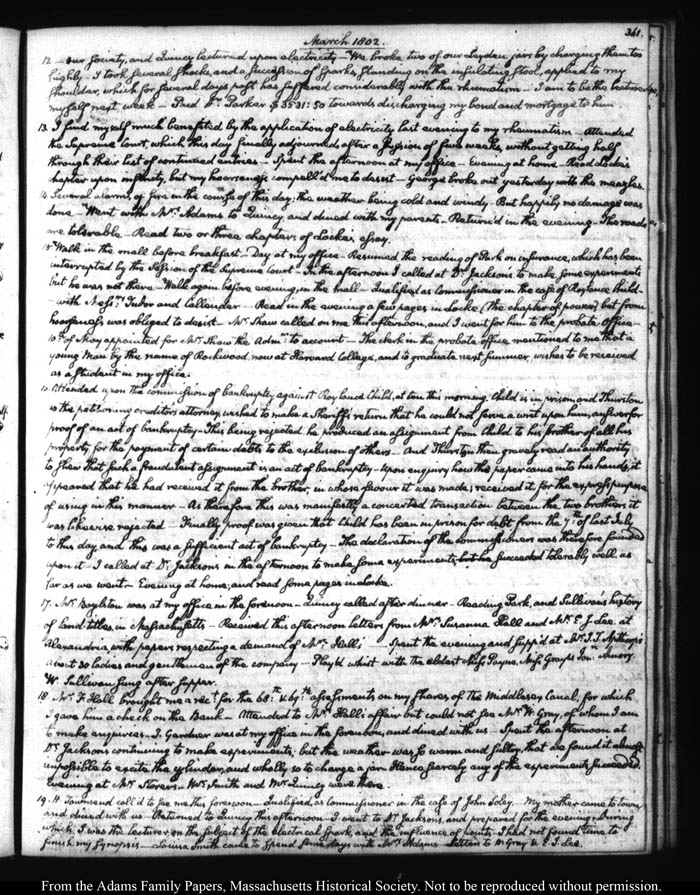 361.
March 1802.
12 — our Society, and Quincy lectured upon electricity — We broke two of our Leyden jars by charging them too
highly — I took several shocks, and a succession of sparks standing on the insulating stool, applied to my
shoulder, which for several days past has suffered considerably with the rheumatism — I am to be the lecturer
myself next week — Paid Dr. Parker $3531:50 towards discharging my bond and mortgage to him
13. I find myself much benefited by the application of electricity last evening to my rheumatism — Attended
the Supreme Court, which this day finally adjourned, after a session of five weeks, without getting half
through their list of continued entries — Spent the afternoon at my office — Evening at home — Read Locke's
chapter upon infinity, but my hoarseness compell'd me to desist — George broke out yesterday with the measles.
14 Several alarms of fire in the course of this day; the weather being cold and windy. But happily no damage was
done — Went with Mrs. Adams to Quincy and dined with my parents — Return'd in the evening — The roads
are tolerable — Read two or three chapters of Locke's essay.
15 Walk in the mall before breakfast — Day at my office — Resumed the reading of Park on insurance, which has been
interrupted by the session of the Supreme Court — In the afternoon I called at Dr. Jackson's to make some experiments
but he was not there — Walk again before evening, in the mall — Qualified as Commissioner in the case of Child
— with Messrs. Tudor and Callender — Read in the evening a few pages in Locke (the chapter of power) but from
hoarseness, was obliged to desist — Mr. Shaw called on me this afternoon, and I went for him to the probate office —
10th of May appointed for Mr. Shaw the Admr. to account — The clerk in the probate office mentioned to me that a
young man by the name of Rockwood now at Harvard College, and to graduate next summer, wishes to be received
as a student in my office.
16. Attended upon the commission of bankruptcy against Child, at ten this morning. Child is in prison, and Thurston
as the petitioning creditors attorney, wished to make a Sheriff's return that he could not serve a writ upon him, answer for
proof of an act of bankruptcy — This being rejected he produced an assignment from Child to his brother of all his
property, for the payment of certain debts, to the exclusion of others — And Thurston then gravely read an authority
to shew that such a fraudulent assignment is an act of bankruptcy — Upon enquiry how the paper came into his hands, it
appeared that he had received it from the brother, in whose favour it was made; received it for the express purpose
of using in this manner — As therefore this was manifestly a concerted transaction between the two brothers it
was likewise rejected — Finally proof was given that Child has been in prison for debt, from the 7th of last July
to this day and this was a sufficient act of bankruptcy — The declaration of the commissioners was therefore founded
upon it — I called at Dr. Jackson's in the afternoon to make some experiments; but he succeeded tolerably well as
far as we went — Evening at home; and read some pages in Locke.
17. Mr. Boylston was at my office in the forenoon — Quincy called after dinner — Reading Park, and Sullivan's history
of land titles, in Massachusetts — Received this afternoon letters from Mrs. Susanna Hall and Mr. E. J. Lee, at
Alexandria, with papers respecting a demand of Mrs. Hall's — Spent the evening and supp'd at Mr. J. T. Apthorp's
about 30 ladies and gentlemen of the company — Play'd whist with the eldest Miss Payne, Miss Gray & Jon: Amory
W. Sullivan sung after supper.
18 Mr. F. Hall brought me a rect. for the 68th & 69th assessments, on my shares of the Middlesex Canal, for which
I gave him a check on the Bank — Attended to Mrs. Hall's affair but could not see Mr. W. Gray, of whom I am
to make enquiries — J. Gardner was at my office in the forenoon, and dined with us — Spent the afternoon at
Dr. Jackson's continuing to make experiments; but the weather was so warm and sultry, that we found it almost
impossible to excite the cylinder, and wholly so to charge a jar. Hence scarcely any of the experiments succeeded.
Evening at Mr. Storer's. Mrs. Smith and Mr. Quincy were there.
19. H Townsend call'd to see me this forenoon — Qualified, as Commissioner in the case of John Soley. My mother came to town
and dined with us — Returned to Quincy this afternoon — I went to Dr. Jackson's, and prepared for the evening, during
which, I was the lecturer, on the subject of the electrical spark, and the influence of points — I had not found time to
finish my synopsis — Louisa Smith came to spend some days with Mrs. Adams — Letters to W. Gray & E. J. Lee.
From the Adams Family Papers, Massachusetts Historical Society. Not to be reproduced without permission.